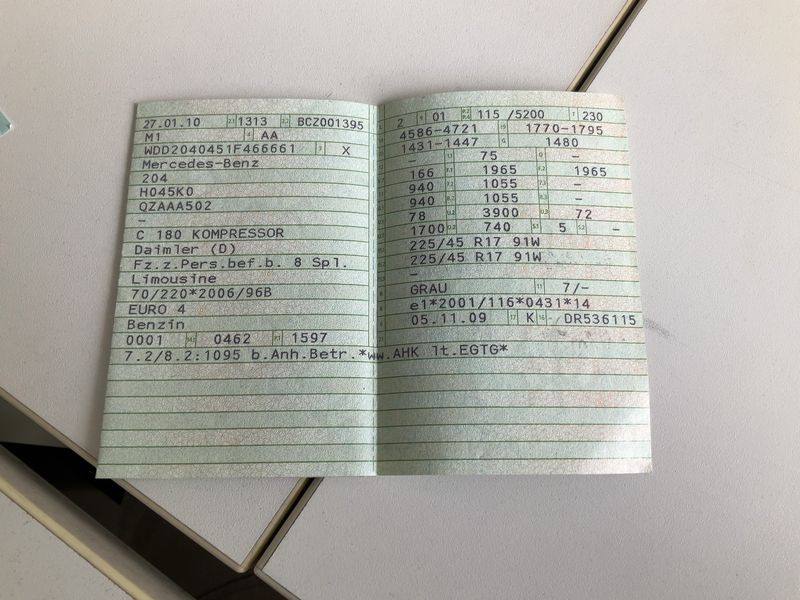 27.01.10 1313 BCZ001395
M1 AA
WDD2040451F466661 X
Mercedes-Benz
204
H045K0
QZAAA502
–
C 180 KOMPRESSOR
Daimler (D)
Fz.z.Pers.bef.b. 8 Spl.
Limousine
70/220*2006/96B
EURO 4
Benzin
0001 0462 1597
7.2/8.2:1095 b.Anh.Betr.*ww.AHK lt.EGTG*
2 01 115 /5200 230
4586-4721 1770-1795
1431-1447 1480
– 75 –
166 1965 1965
940 1055 –
940 1055 –
78 3900 72
1700 740 5 –
225/45 R17 91W
225/45 R17 91W
–
GRAU 7/-
e1*2001/116*0431*14
05.11.09 K - DR536115